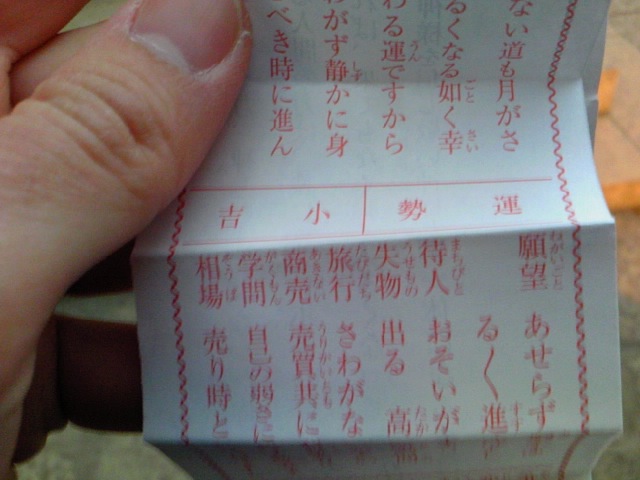 ない道も月がさ
るくなる如く幸
わる運ですから
わがず静かに身
べき時に進ん
運勢 小吉
願望 あせらず
るく進
待人 おそいが
失物 出る 高
旅行 さわがな
商売 売買共に
学問 自己の弱さに
相場 売り時と